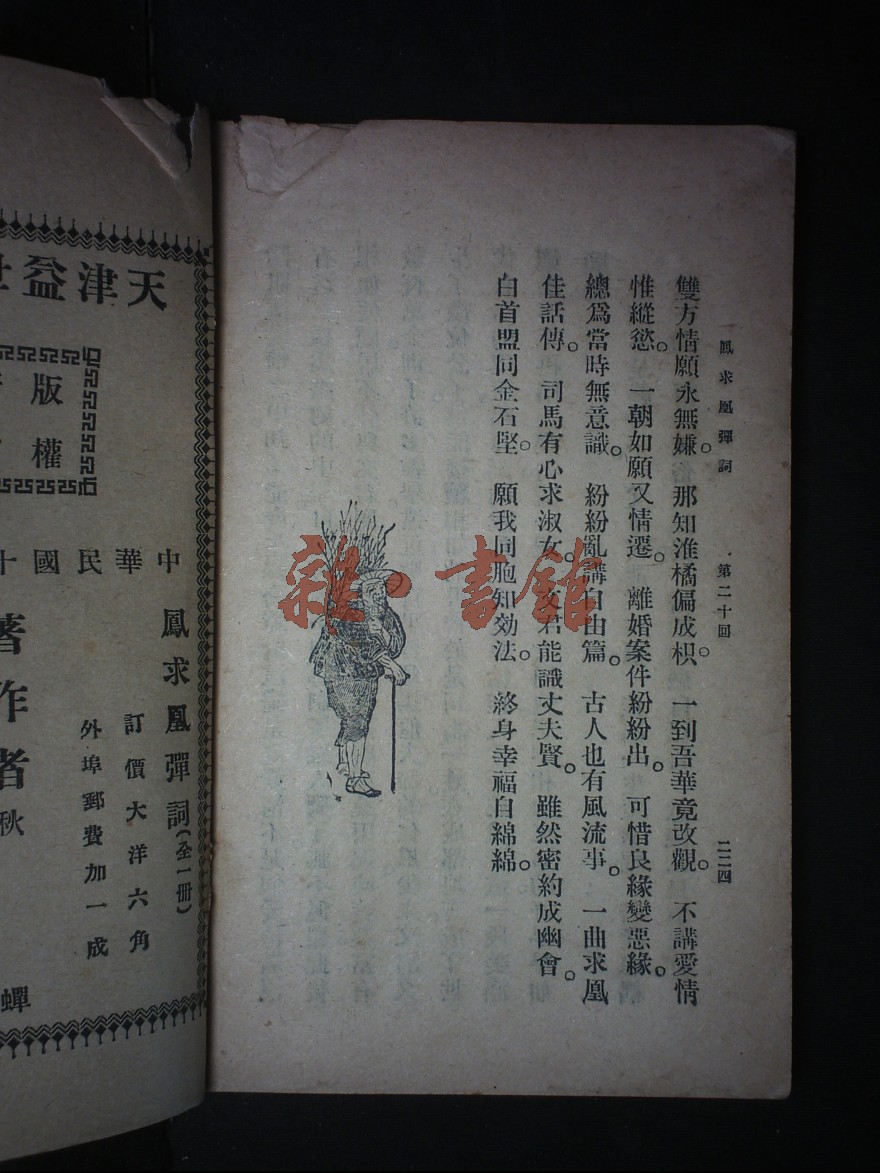 鳳求凰彈詞 第二十回 二二四
雙方情願永無嫌。那知淮橘偏成枳。一到吾華竟改觀。不講愛情
惟縱慾。一朝如願又情遷。離婚案件紛紛出。可惜良緣變惡緣。
總爲當時無意識。紛紛亂講自由篇。古人也有風流事。一曲求凰
佳話傳。司馬有心求淑女。文君能識丈夫賢。雖然密約成幽會。
白首盟同金石堅。願我同胞知効法。終身幸福自綿綿。
雜·書館
天津益世
版
權
中華民國十
鳳求凰彈詞(全一冊)
訂價大洋六角
外埠郵費加一成
著作者
秋
蟬